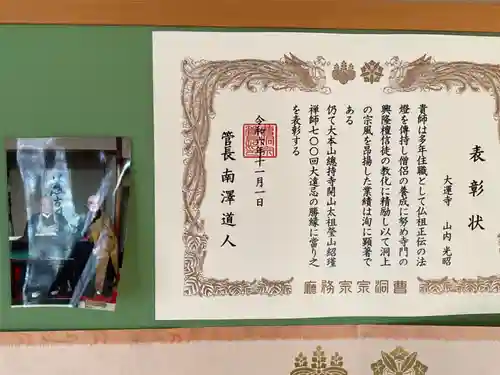 表彰状
大運寺　山内光昭
貴師は多年住職として仏祖正伝の法
燈を傳持し僧侶の養成に努め寺門の
興隆檀信徒の教化に精励し以て洞上
の宗風を昂揚した業績は洵に顕著で
ある
仍て大本山總持寺開山太祖瑩山紹瑾
禅師七〇〇回大遠忌の勝縁に當り之
を表彰する
令和六年十一月一日
管長 南澤道人
曹洞宗宗務廳